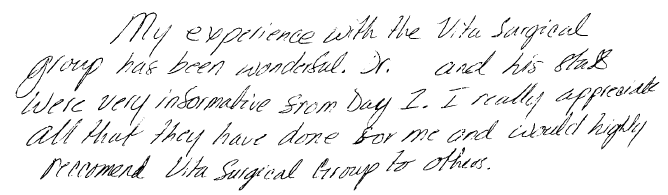 My experience with the Vita Surgical
group has been wonderful. Dr. and his staff
were very informative from Day 1. I really appreciate
all that they have done for me and would highly
reccomend Vita Surgical Group to others.